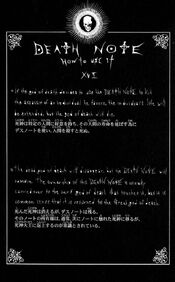 DEATH NOTE
How to use it
XVI
If the god of death decides to use the DEATH NOTE to kill
the assassin of an individual he favors, the individual's life will
be extended, but the god of death will die.
死神は特定の人間に好意を持ち、その人間の寿命を延ばす為に
デスノートを使い、人間を殺すと死ぬ。
The dead god of death will disappear, but the DEATH NOTE will
remain. The ownership of this DEATH NOTE is usually
carried over to the next god of death that touches it, but it is
common sense that it is returned to the Great god of death.
死んだ死神は消えるが、デスノートは残る。
そのノートの所有権は、通常、次にノートに触れた死神に移るが、
死神大王に返上するのが常識とされている。